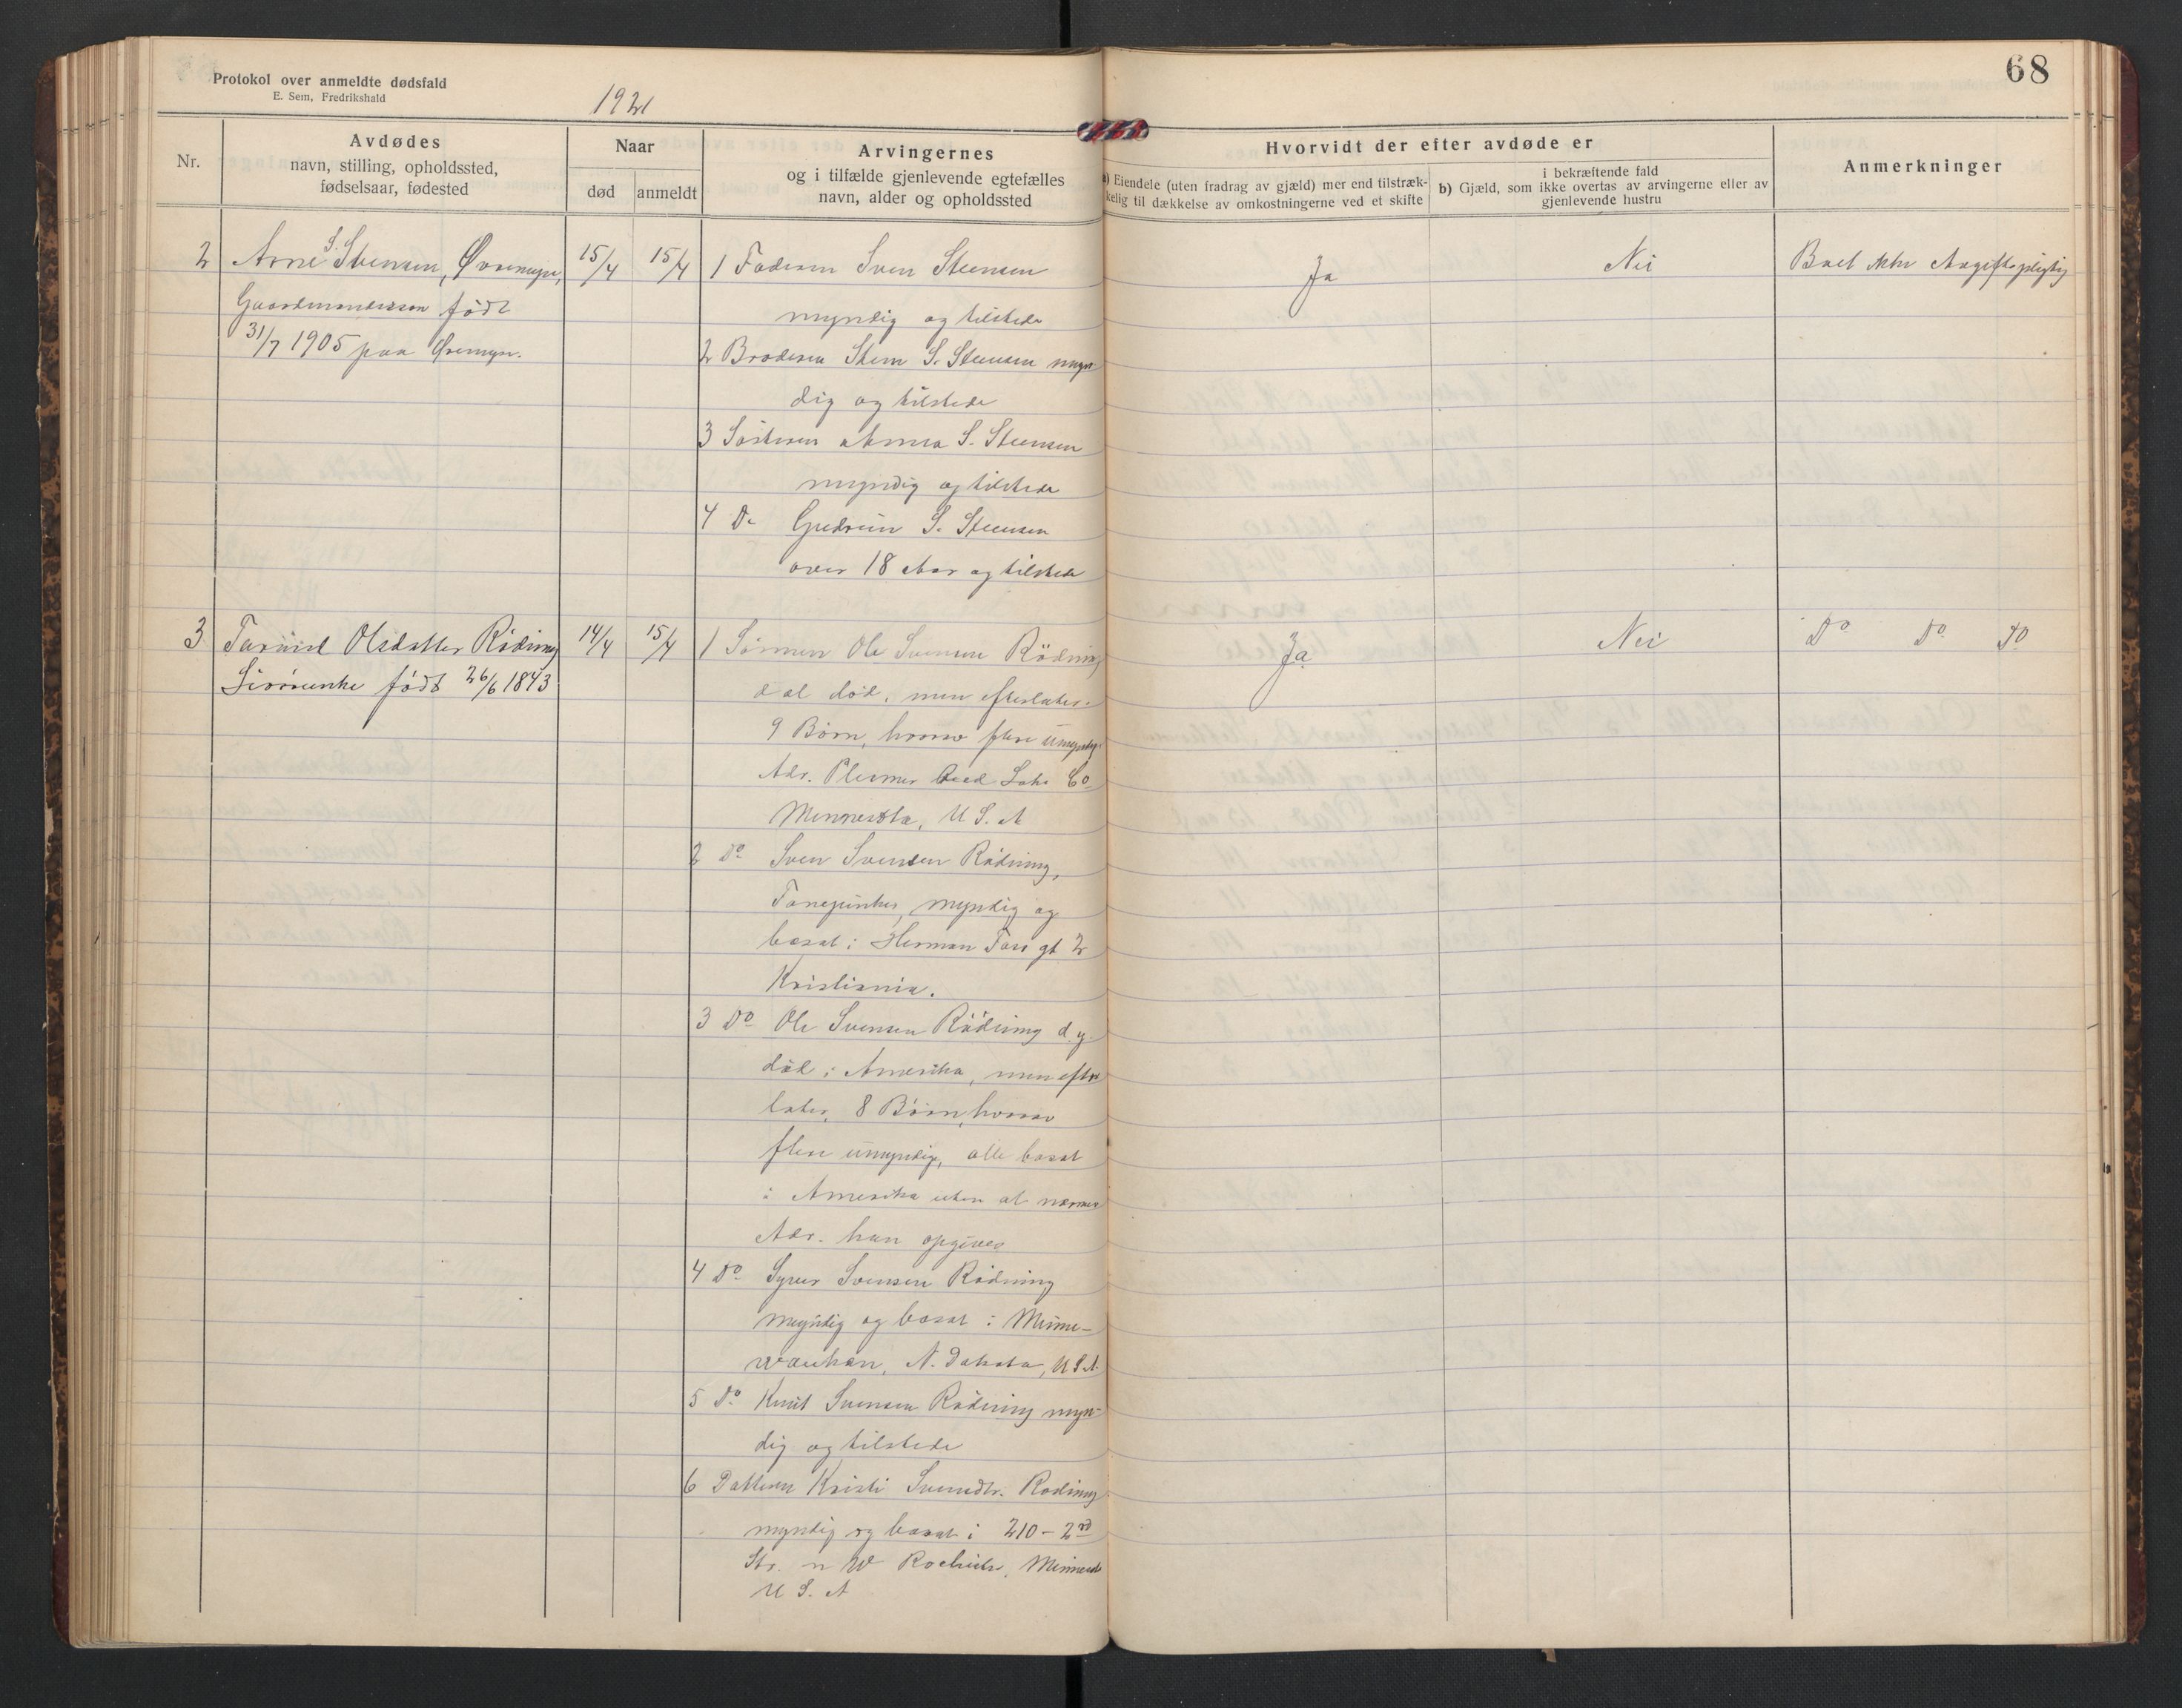 68
Protokol over anmeldte dødsfald
E. Sem, Fredrikshald
1921
Nr.
Avdødes
navn, stilling, opholdssted,
fødselsaar, fødested
Naar
død
anmeldt
Arvingernes
og i tilfælde gjenlevende egtefælles
navn, alder og opholdssted
Hvorvidt der efter avdøde er
a) Eiendele (uten fradrag av gjæld) mer end tilstræk-
kelig til dækkelse av omkostningerne ved et skifte
i bekræftende fald
b) Gjæld, som ikke overtas av arvingerne eller av
gjenlevende hustru
Anmerkninger
2 Arne S. Stensen,
Gaardmandssøn født
31/7 1905 paa
15/4
15/4
1 Faderen Sven Steensen
myndig og tilstede
2 Broderen Sten S. Steensen myn
dig og tilstede
3 Søsteren Anna S. Steensen
myndig og tilstede
4 Do Gudrun S. Steensen
over 18 Aar og tilstede
Ja
Nei
Boet Avgiftspligtig
3 Olsdatter Rödning
født 26/6 1843
14/4
15/4
1 Sönnen Ole Svensen Rödning
död, men efterlater
9 Börn, hvorav flere umyndig
Adr. Plummer Red Lake Co
Minnesota, U S. A
2 Do Sven Svensen Rödning,
myndig og
bosat i Herman gt 2
Kristiania.
3 Do Ole Svensen Rödning d. y.
död i Amerika, men efter
later 8 Börn, hvorav
flere umyndige, alle bosat
i Amerika uten at nærmere
Adr. kan opgives
4 Do Syver Svensen Rödning
myndig og bosat i Minne-
waukan, N. Dakota, U S A.
5 Do Knut Svensen Rödning myn-
dig og tilstede
6 Datteren Kristi Svensdtr. Rödning
myndig og bosat i 210 - 2rd
Str. n W Rochester, Minnesota
U S. A
Ja
Nei
Do Do Do